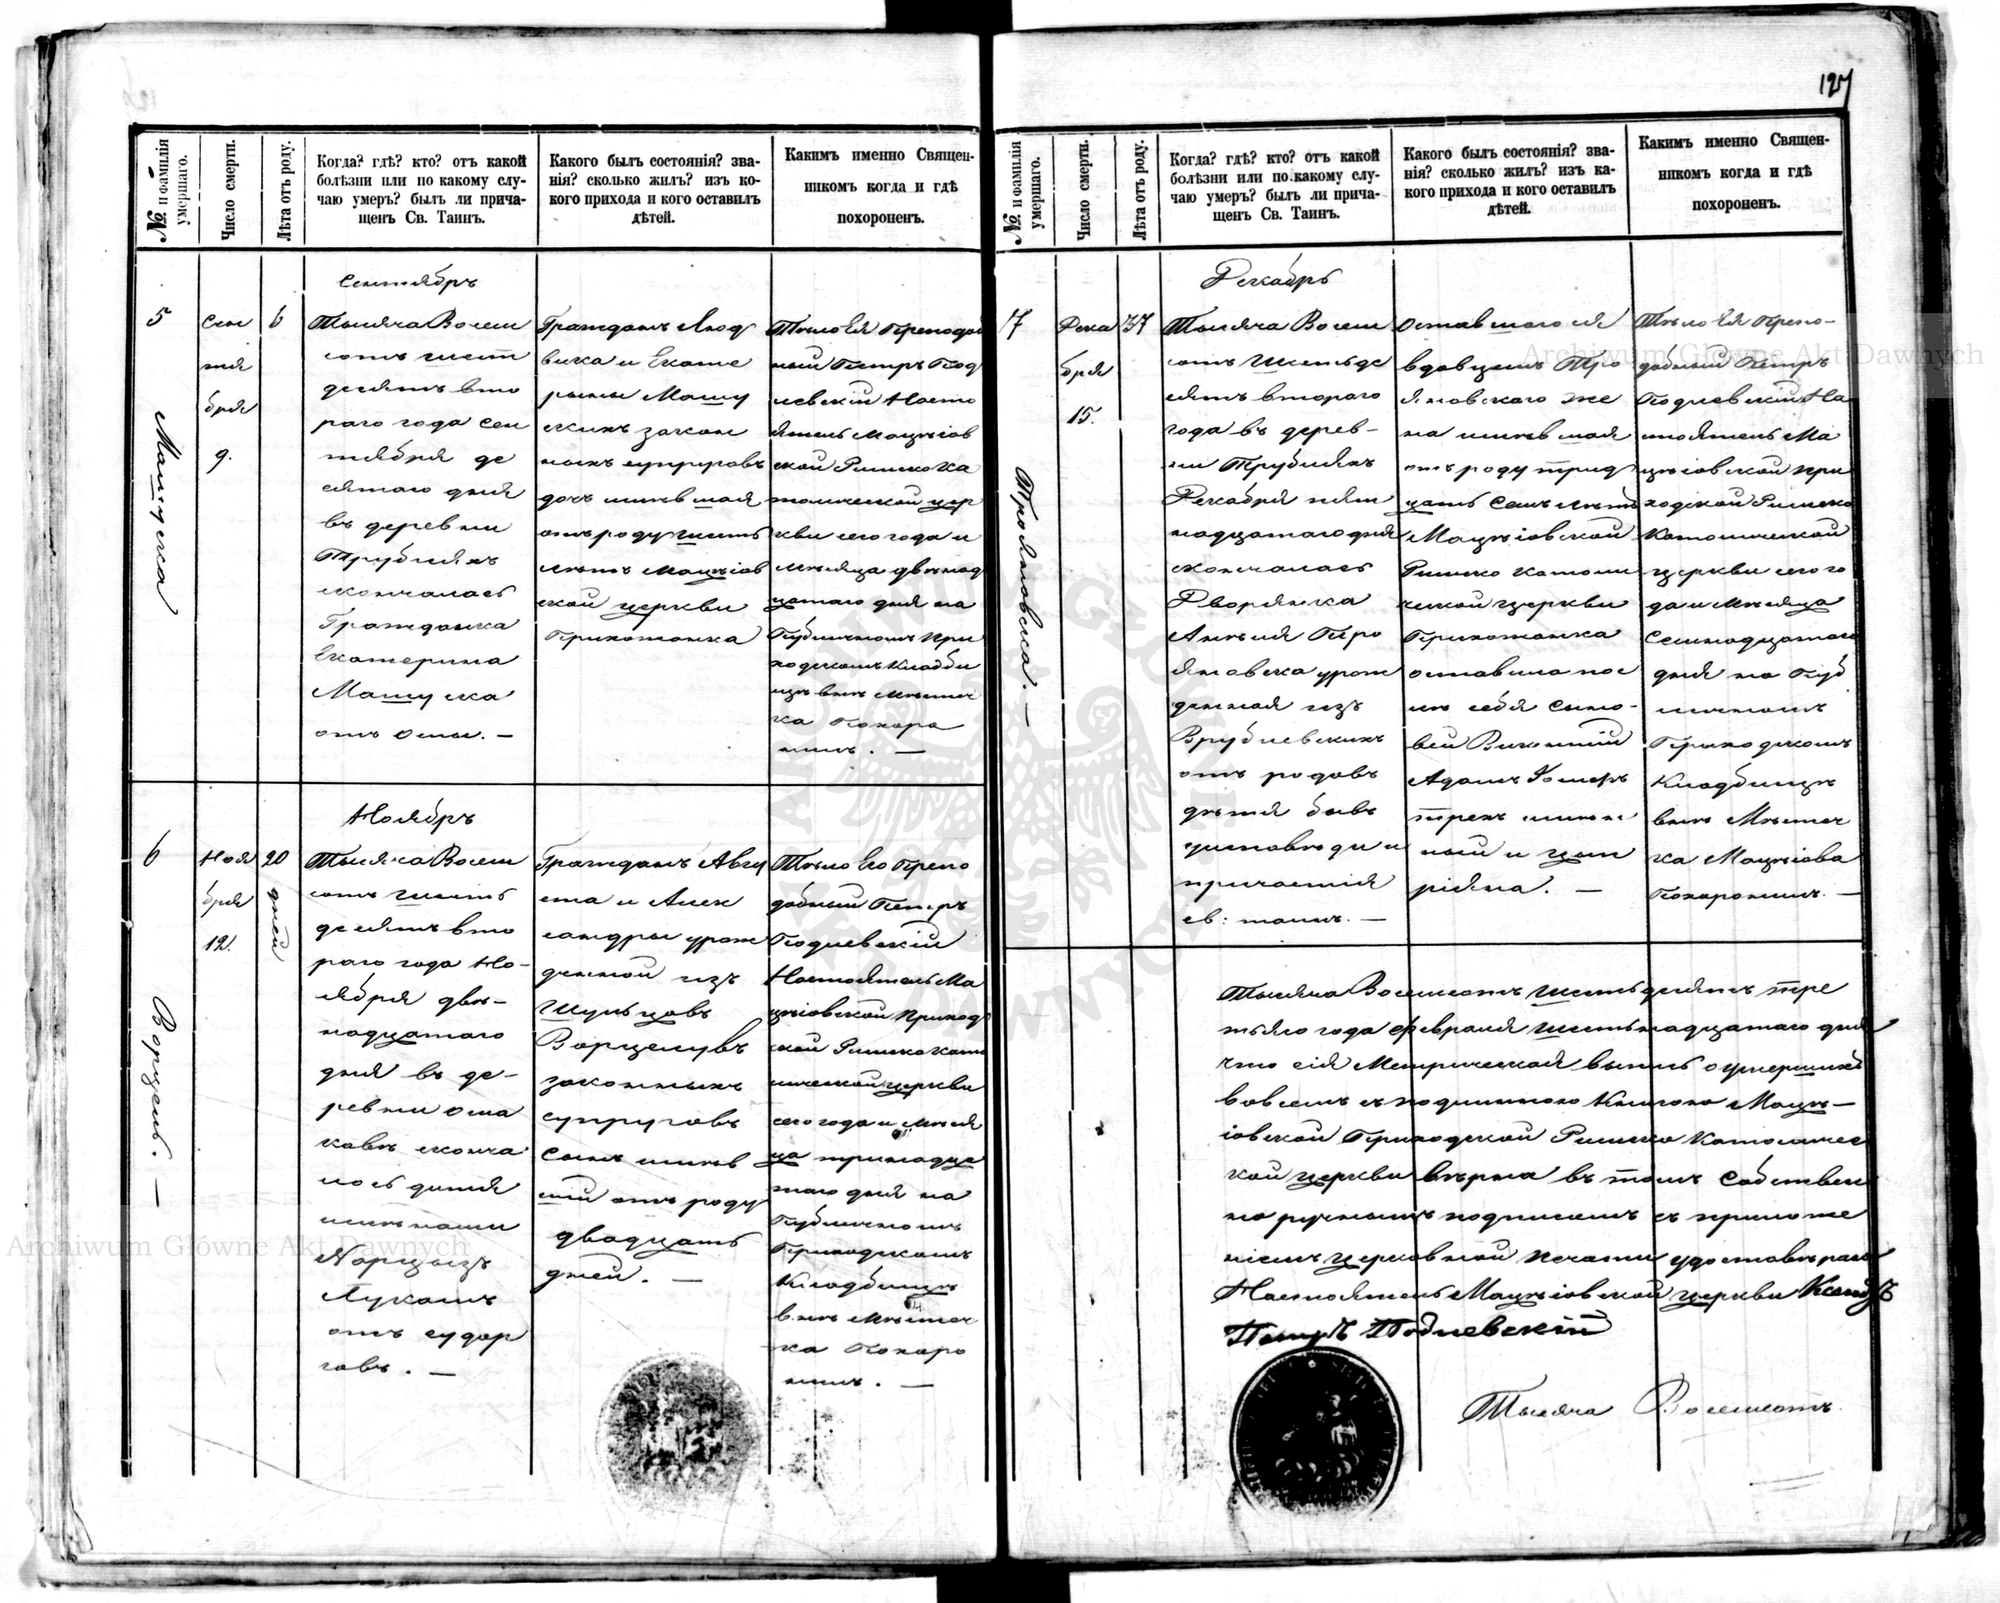 127
№. и фамилія умершаго.
Число смерти.
Лѣта отъ роду.
Когда? гдѣ? кто? отъ какой
болѣзни или по какому слу-
чаю умеръ? былъ ли прича-
щенъ Св. Таинъ.
Какого былъ состоянія? зва-
нія? сколько жилъ? изъ ко-
кого прихода и кого оставилъ
дѣтей.
Какимъ именно Священ-
никомъ когда и гдѣ
похороненъ.
5
Машуска
Сен
тя
бря
9.
6
Сентябрь
Тысяча Восем
сотъ шест
десятъ вто
раго года Сен
тября де
сятаго дня
въ деревни
Трублякъ
скончалась
Гражданка
Екатерина
Машуска
отъ Оспы. —
Гражданъ Люд
вика и Екате
рыны Машу
скихъ закон
ныхъ супруговъ
дочь имѣвшая
отъ роду шесть
лѣтъ Мацѣіов
ской церкви
Прихожанка
Тѣло Ея Преподоб
ный Петръ Под
левскій Насто
ятель Мацѣіов
ской Римскока
толической цер
кви сего года и
мѣсяца двѣнад
цатаго дня на
Публичномъ При
ходскомъ Кладби
щѣ внѣ Мѣстеч
ка Похоро
нилъ. —
6
Ворцель. —
Ноя
бря
12.
20
дней
Ноябрь
Тысяча Восем
сотъ шесть
десятъ вто
раго года Но-
ября двѣ-
надцатаго
дня въ де-
ревни
сконча
лось дитя
имѣнами
Нарцызъ
Лукашъ
отъ судор
говъ. —
Гражданъ Авгу
ста и Алек
сандры урож
денной изъ
Шульцовъ
Ворцелувъ
законныхъ
супруговъ
Сынъ имѣв
шій отъ роду
двадцать
дней. —
Тѣло Его Препо
добный Петръ
Подлевскій
Настоятель Ма
цѣіовской Приход
ской Римскокато
лической церкви
сего года и мѣся
ца тринадца
таго дня на
Публичномъ
Приходскомъ
Кладбищѣ
внѣ Мѣстеч
ка Похоро
нилъ. —
№. и фамилія умершаго.
Число смерти.
Лѣта отъ роду.
Когда? гдѣ? кто? отъ какой
болѣзни или по какому слу-
чаю умеръ? былъ ли прича-
щенъ Св. Таинъ.
Какого былъ состоянія? зва-
нія? сколько жилъ? изъ ка-
кого прихода и кого оставилъ
дѣтей.
Какимъ именно Священ-
никомъ когда и гдѣ
похороненъ.
7
Трояновска. —
Дека
бря
15.
37
Декабрь
Тысяча Восем
сотъ Шестьде
сятъ втораго
года въ дерев-
ни Трублякъ
Декабря пят
надцатаго дня
скончалась
Дворянка
Анѣля Тро
яновска урож
денная изъ
Врублевскихъ
отъ родовъ
дѣтя бывъ
исповѣди и
причастія
св: таинъ. —
Оставшагося
вдовцемъ Тро
яновскаго же
на имѣвшая
отъ роду трид
цать Семь лѣтъ
Мацѣіовской
Римско Католи
ческой церкви
Прихожанка
оставила пос
лѣ себя Сыно-
вей Викентій
Адамъ
трехъ имѣн
ный и Цып
ріяна. —
Тѣло Ея Препо-
добный Петръ
Подлевскій На
стоятель Ма
цѣіовской При
ходской Римско
Католической
церкви сего го
да и Мѣсяца
Семнадцатаго
дня на Пуб
личномъ
Приходскомъ
Кладбищѣ
внѣ Мѣстеч
ка Мацѣіова
Похоронилъ. —
Тысяча Восемсотъ шестьдесятъ тре
тьяго года февраля шестьнадцатаго дня
что сія Метрическая выпись о умершихъ
во всемъ съ подлинною Книгою Мацѣ—
іовской Приходской Римско Католичес
кой церкви вѣрна въ томъ Собствен
но ручнымъ подписомъ съ приложе
ніемъ церковной печати удостовѣряю
Настоятель Мацѣіовской церкви Ксендзъ
Петръ Подлевскій
Тысяча Восемсотъ
Archiwum Główne Akt Dawnych
Archiwum Główne Akt Dawnych